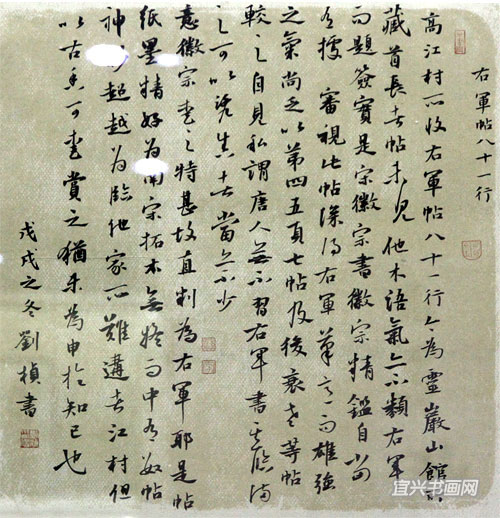 右軍帖八十一行
高江村所收右軍帖八十一行今為靈巖山館所
藏首長者帖未見他本語氣亦不類右軍
而題簽實是宗徽宗書徽宗精鑑自當
有據審視此帖深得右軍筆意而雄強
之氣尚乏以第四五頁七帖及後衰老等帖
較之自見私謂唐人無不習右軍書其臨
之可以真者當亦不少
意徽宗愛之特甚故直判為右軍耶是帖
紙墨精好為南宗拓本無疑而中有數帖
神超越為臨他家所難遘者江村但
以古香可愛賞之猶未為申於知己也
戊戌之冬劉楨書
宜兴书画网